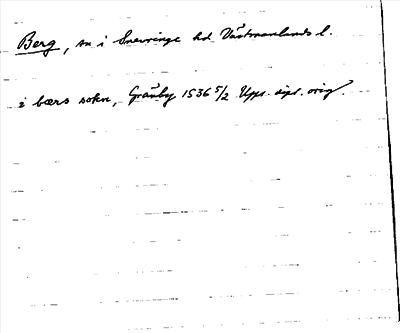 Berg, sn i Snevringe hd Västmanlands l.
i bærs sokn, Gräuby 1536 5/2 Upps. dipl. orig.